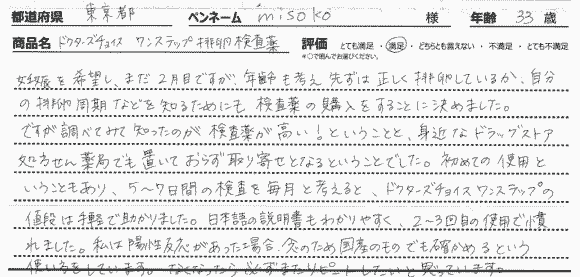 都道府県 東京都 ペンネーム misoko 様 年齢 33 歳
商品名 ドクターズチョイス ワンステップ排卵検査薬 評価 とても満足 ・ 満足 ・ どちらとも言えない ・ 不満足 ・ とても不満足
*○で囲んでお選びください。
妊娠を希望し、まだ2月目ですが、年齢も考え先ずは正しく排卵しているか、自分
の排卵周期などを知るためにも検査薬の購入をすることに決めました。
ですが調べてみて知ったのが検査薬が高い!ということと、身近なドラッグストア
処方せん薬局でも置いておらず取り寄せとなるということでした。初めての使用と
いうこともあり、5~7日間の検査を毎月と考えると、ドクターズチョイスワンステップの
値段は手軽で助かりました。日本語の説明書もわかりやすく、2~3回目の使用で慣
れました。私は陽性反応があった場合、念のため国産のものでも確かめるという
使い方をしています。なくなったら必ずまたリピートしたいと思っています。